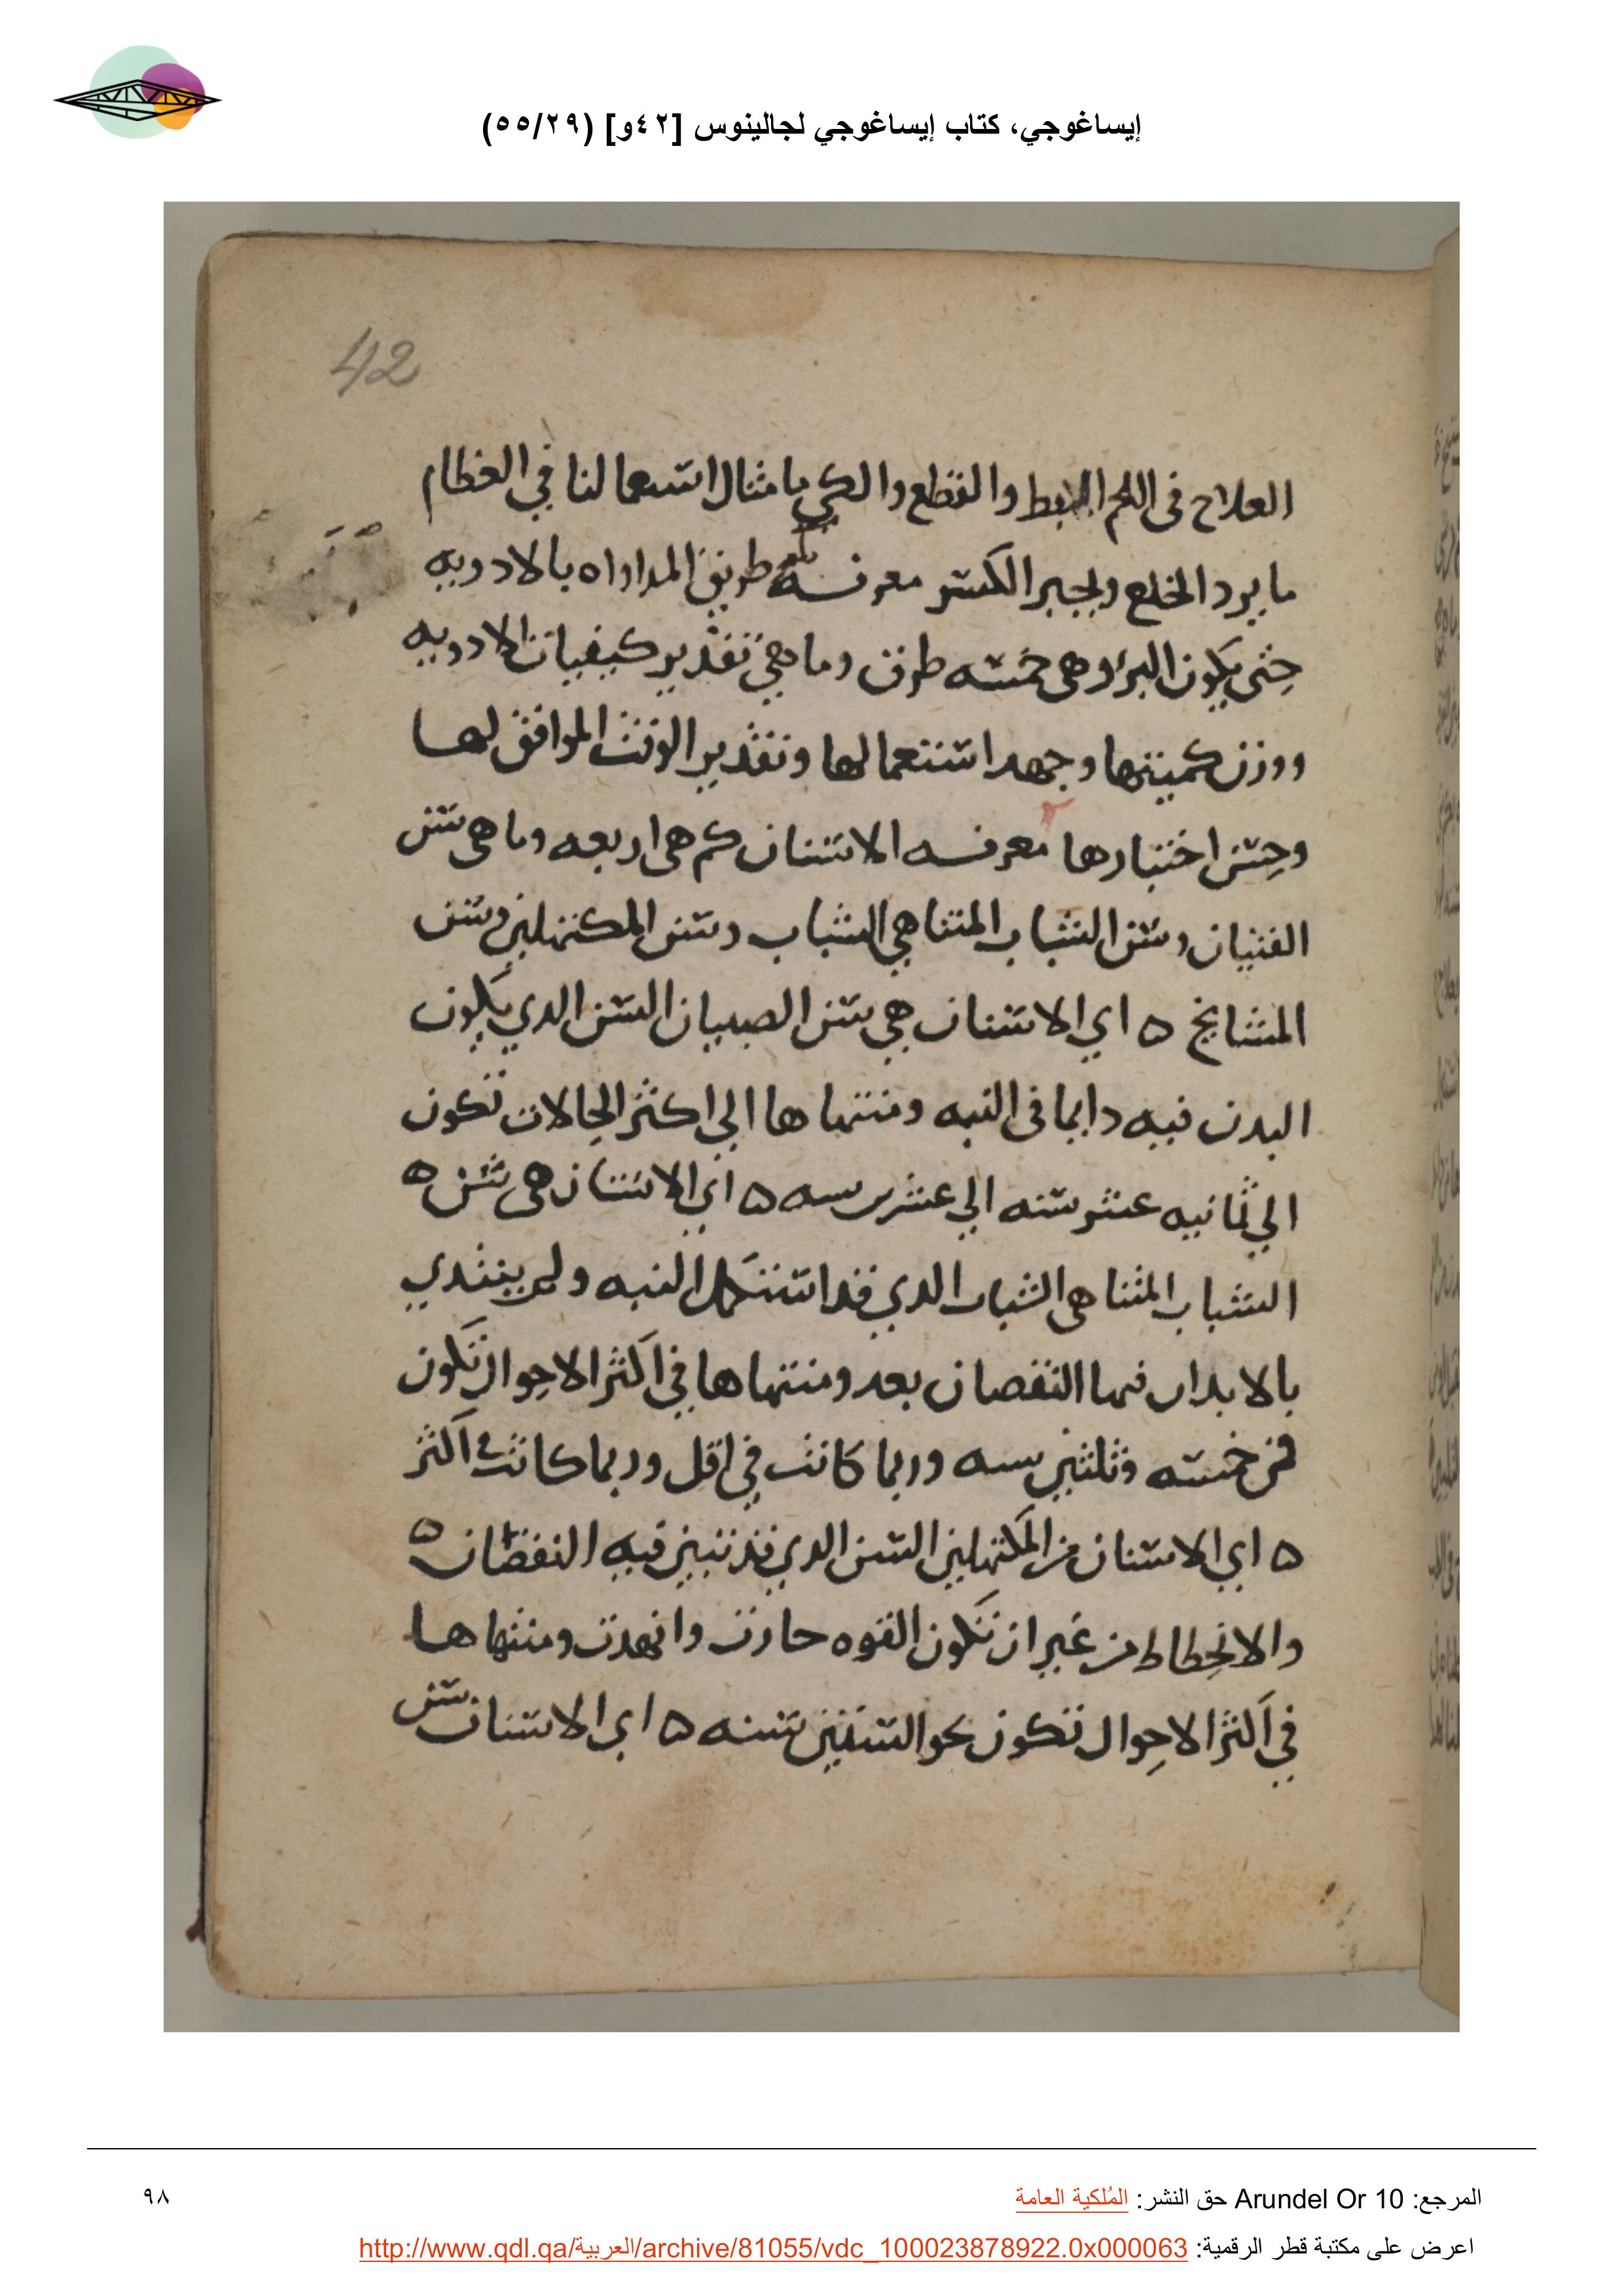 إيساغوجي، كتاب إيساغوجي لجالينوس [٤٢و] (٥٥/٢٩)
42
العلاج فى اللحم البط والقطع والكي يا مثال استعمالنا في العظام
ما يرد الخلع ويجبر الكسر معرفة كم طريق المداواه بالادويه
حتى يكون البرؤ وهى خمسه طرق وما هي تقدير كيفيات الادويه
ووزن كميتها وجهد استعمالها وتقدير الوقت الموافق لها
وحسن اختيارها معرفه الاسنان كم هى اربعه وما هى سن
الفتيان وسن الشباب المتناهي الشباب وسن المكتهلين وسن
المشايخ ه اي الاسنان هي سن الصبيان السن الدي يكون
البدن فيه دايما فى النبه ومنتهاها الي اكثر الحالات تكون
الي ثمانيه عشر سنه الي عشرين سنه ه اي الاسنان هى سن ه
الشباب المتناهى الشباب الدي قد استكمل النبه ولم يبتدي
بالابدان فيها النقصان بعد ومنتهاها في اكثر الاحوال تكون
من خمسه وثلثين سنه وربما كانت في اقل وربما كانت في اكثر
ه اي الاسنان من المكتهلين السن الدي قد تبين فيه النقصان ه
والانحطاط من غير ان تكون القوه حارت وانهدت ومنتهاها
في اكثر الاحوال تكون نحو الستين سنه ه اي الاسنان سن
المرجع: Arundel Or 10 حق النشر: المُلكية العامة
٩٨
اعرض على مكتبة قطر الرقمية: http://www.qdl.qa/العربية/archive/81055/vdc_100023878922.0x000063